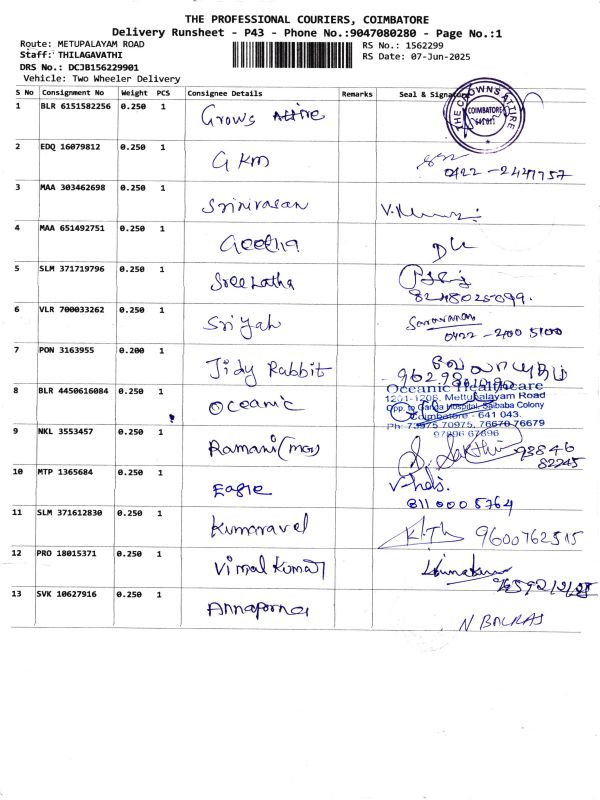 THE PROFESSIONAL COURIERS, COIMBATORE
Delivery Runsheet - P43 - Phone No.:9047080280 - Page No.:1
Route: METUPALAYAM ROAD RS No.: 1562299
Staff: THILAGAVATHI RS Date: 07-Jun-2025
DRS No.: DCJB156229901
Vehicle: Two Wheeler Delivery
S No Consignment No Weight PCS Consignee Details Remarks Seal & Signature
THE CROWNS ATTIRE
COIMBATORE
1 BLR 6151582256 0.250 1 Grows Attire
2 EDQ 16079812 0.250 1 GKM
0422 - 2441757
3 MAA 303462698 0.250 1 Srinivasan
4 MAA 651492751 0.250 1 Geetha
5 SLM 371719796 0.250 1 Sree Latha
8248025099.
6 VLR 700033262 0.250 1 Sriyah Saravanan
0422 - 2400 5100
7 PON 3163955 0.200 1 Jidy Rabbit வேலாயுதம்
Oceanic Healthcare
1201-1206, Mettupalayam Road
Opp. to Ganga Hospital, Saibaba Colony
Coimbatore - 641 043.
Ph: 73975 70975, 76670 76679
97896 67896
8 BLR 4450616084 0.250 1 Oceanic
9 NKL 3553457 0.250 1 Ramani (mas) S. Sakthi 93846
82245
10 MTP 1365684 0.250 1 Eagle
811 000 5764
11 SLM 371612830 0.250 1 Kumaravel 9600762515
12 PRO 18015371 0.250 1 Vimal Kumar
13 SVK 10627916 0.250 1 Annaporna
N BALRAJ